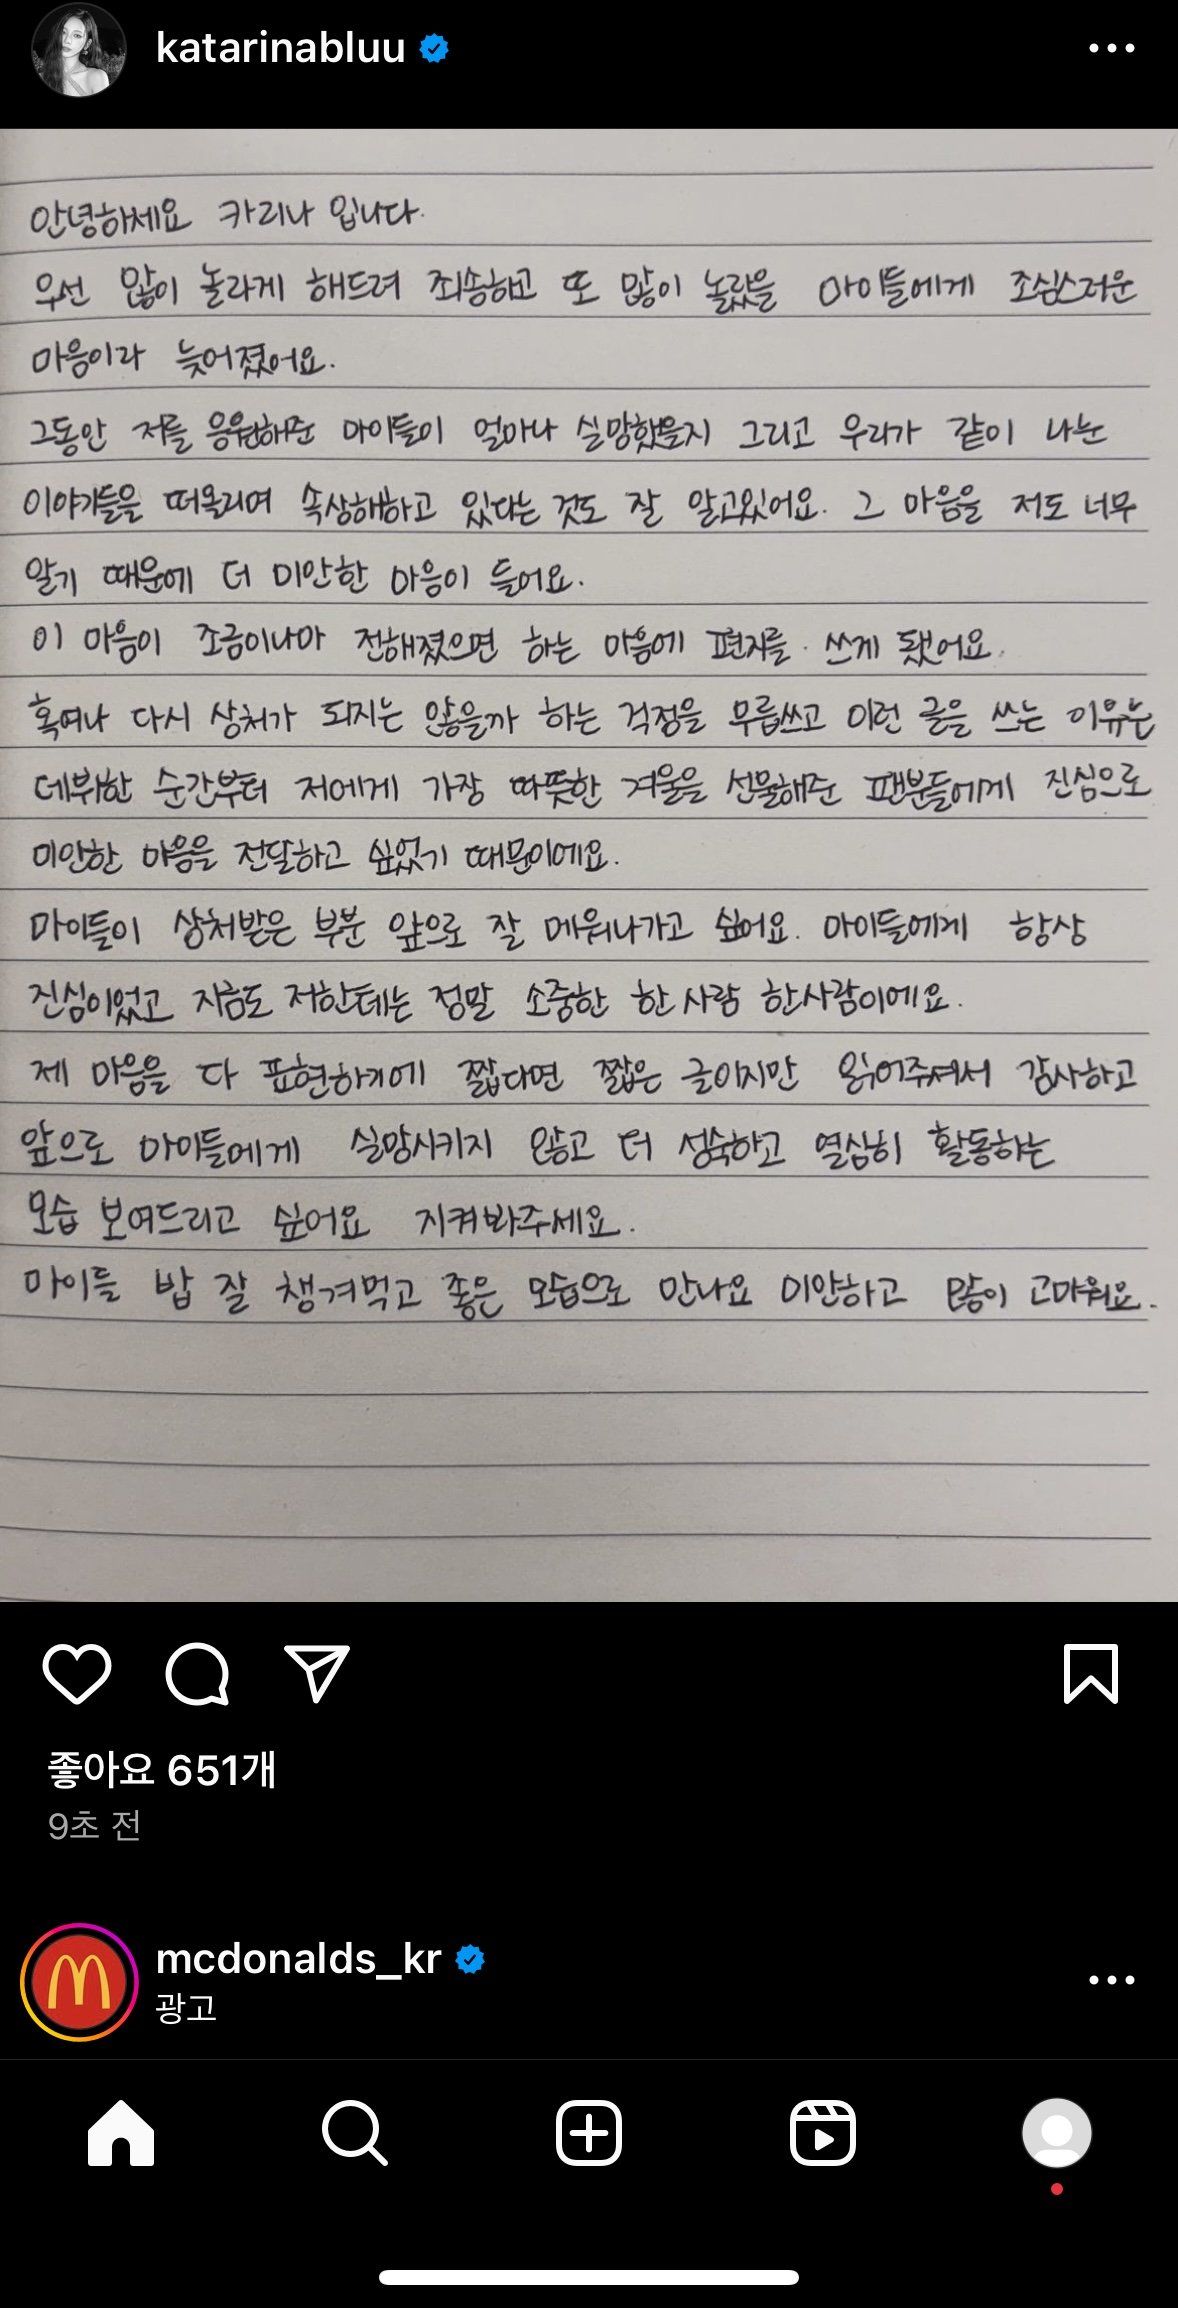 katarinabluu
안녕하세요 카리나 입니다.
우선 많이 놀라게 해드려 죄송하고 또 많이 놀랐을 마이들에게 조심스러운
마음이라 늦어졌어요.
그동안 저를 응원해준 마이들이 얼마나 실망했을지 그리고 우리가 같이 나눈
이야기들을 떠올리며 속상해하고 있다는 것도 잘 알고있어요. 그 마음을 저도 너무
알기 때문에 더 미안한 마음이 들어요.
이 마음이 조금이나마 전해졌으면 하는 마음에 편지를 쓰게 됐어요.
혹여나 다시 상처가 되지는 않을까 하는 걱정을 무릅쓰고 이런 글을 쓰는 이유는
데뷔한 순간부터 저에게 가장 따뜻한 겨울을 선물해준 팬분들에게 진심으로
미안한 마음을 전달하고 싶었기 때문이에요.
마이들이 상처받은 부분 앞으로 잘 메워나가고 싶어요. 마이들에게 항상
진심이었고 지금도 저한테는 정말 소중한 한 사람 한사람이에요.
제 마음을 다 표현하기에 짧다면 짧은 글이지만 읽어주셔서 감사하고
앞으로 마이들에게 실망시키지 않고 더 성숙하고 열심히 활동하는
모습 보여드리고 싶어요 지켜봐주세요.
마이들 밥 잘 챙겨먹고 좋은 모습으로 만나요 미안하고 많이 고마워요.
좋아요 651개
9초 전
mcdonalds_kr
광고